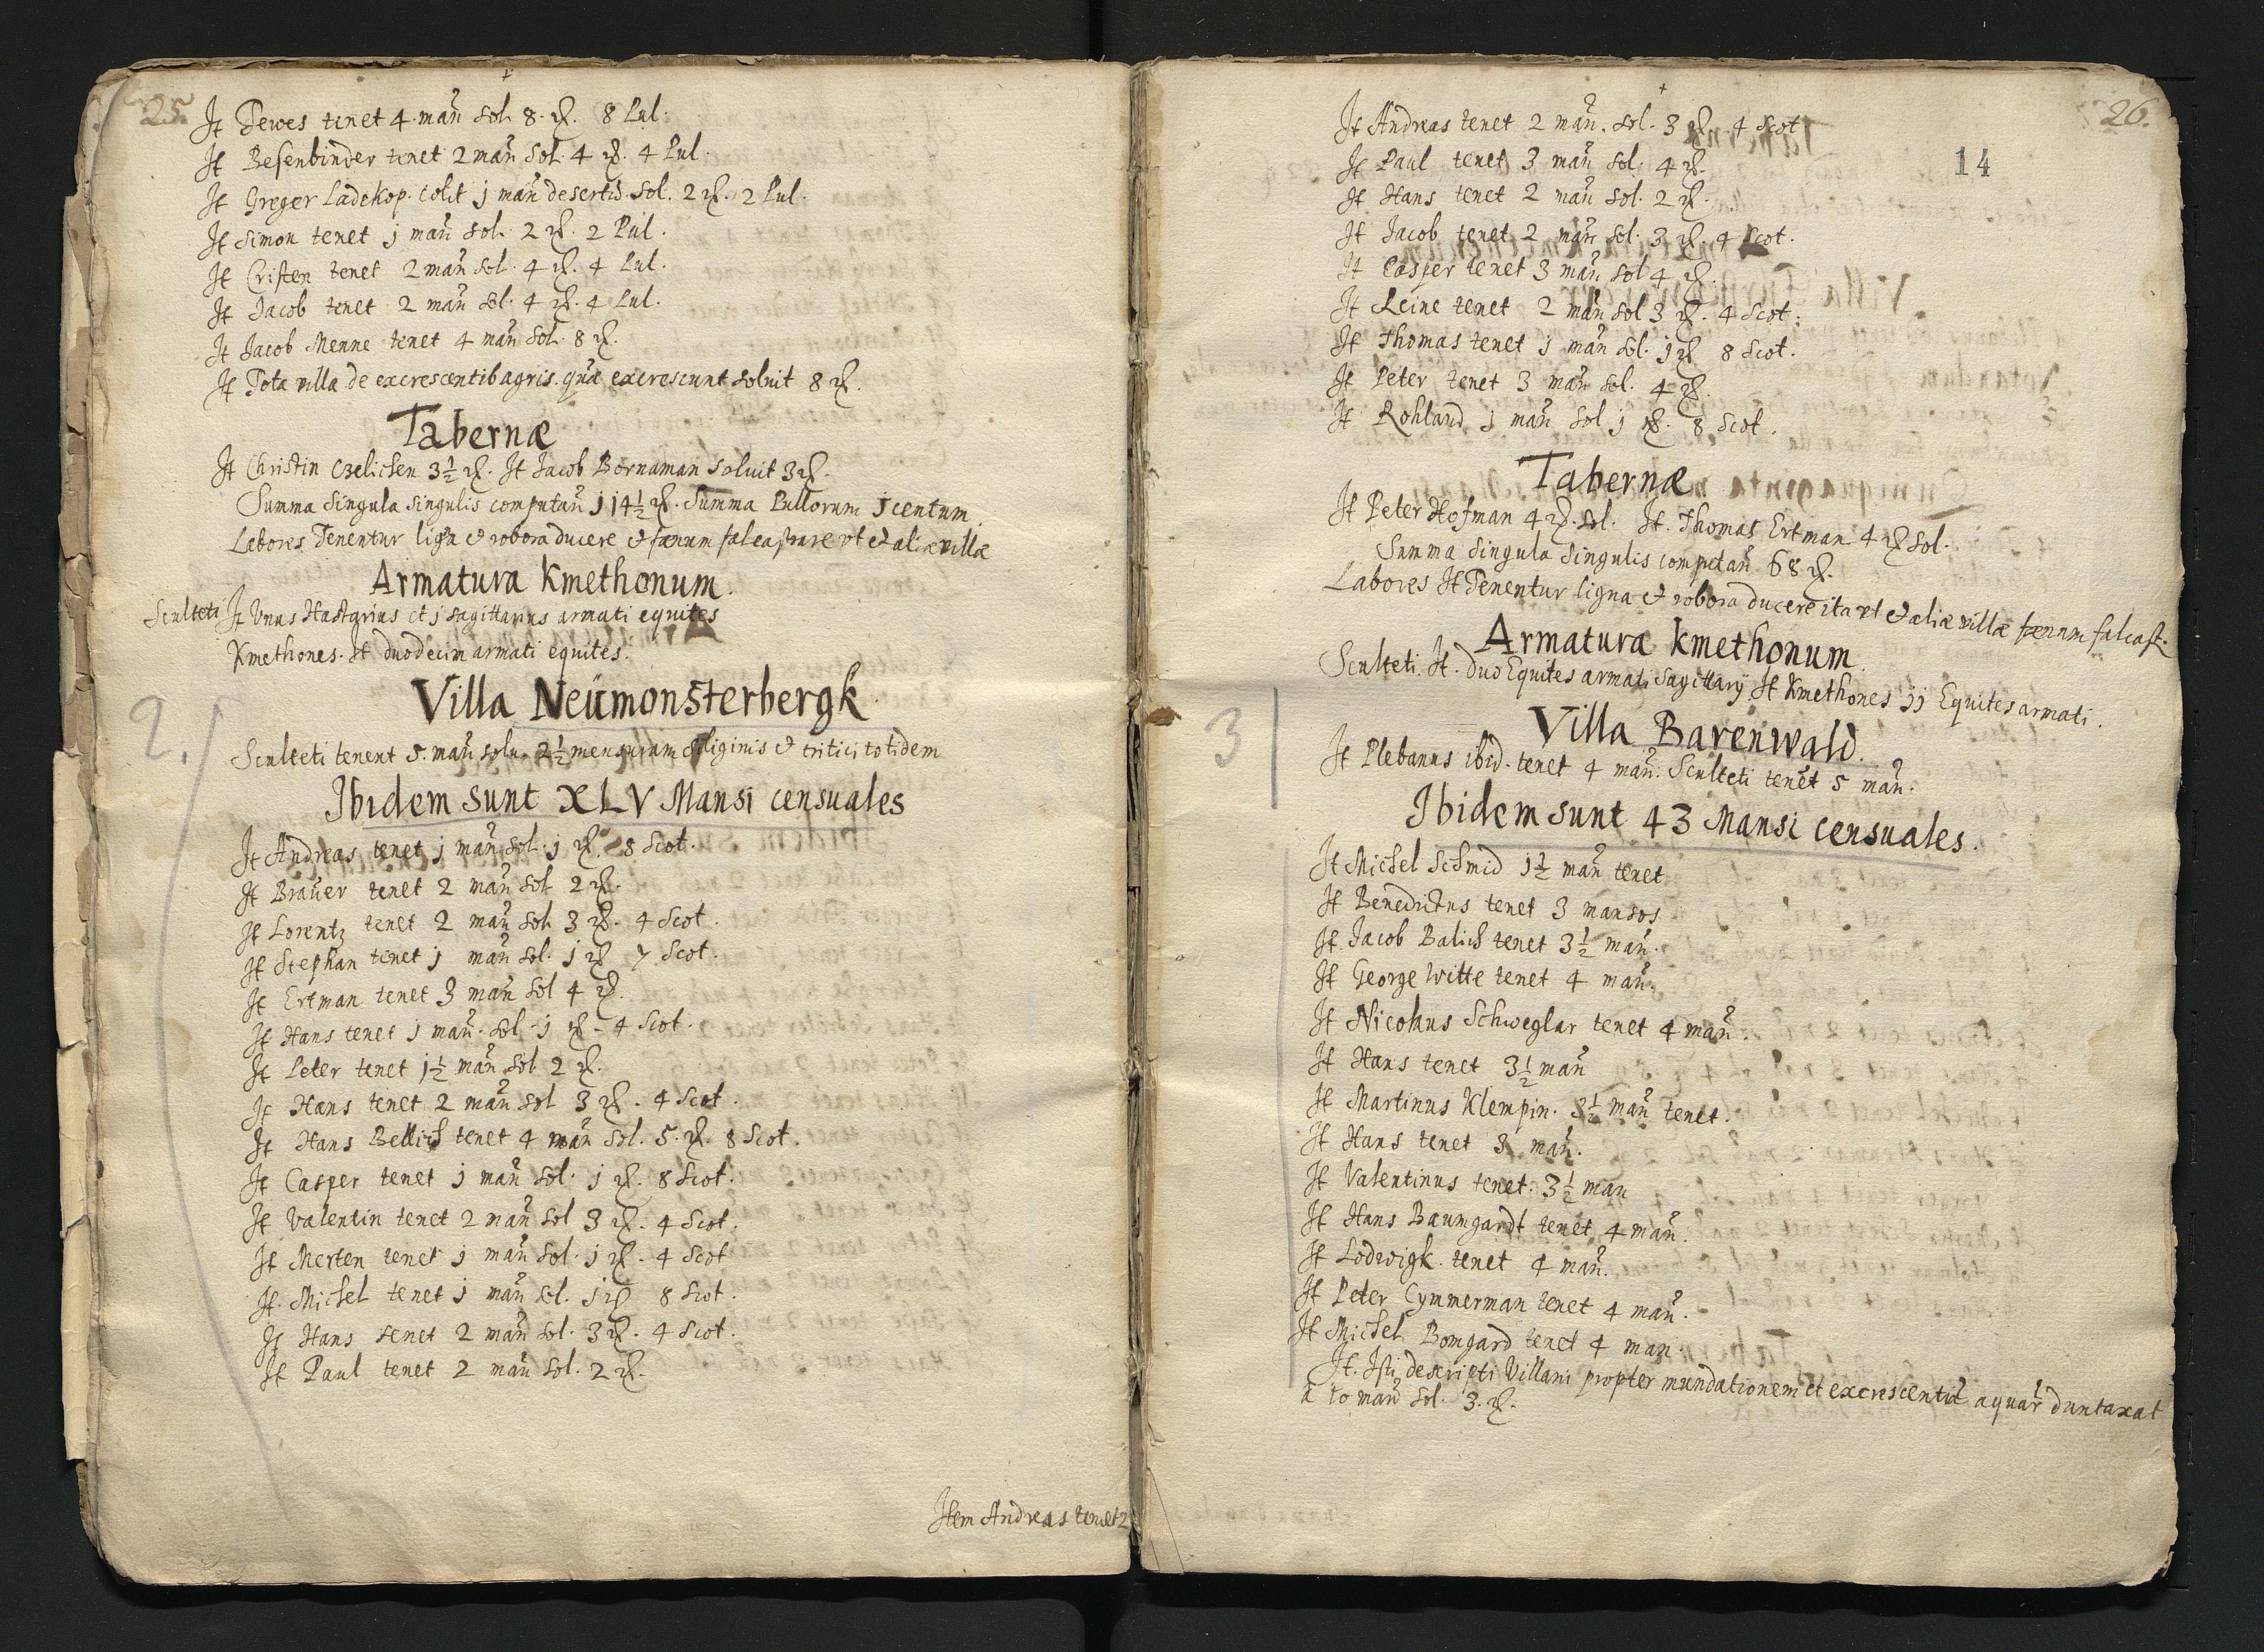 25.
It Dewes tenet 4 mañ sol. 8 ꝶ. 8 Pul.
It Besenbinder tenet 2 mañ sol. 4 ꝶ. 4 Pul.
It Greger Ladekop. colit j mañ desertis. sol. 2 ꝶ. 2 Pul.
It Simon tenet j mañ sol. 2 ꝶ. 2 Pul.
It Cristen tenet 2 mañ sol. 4 ꝶ. 4 Pul.
It Jacob tenet 2 mañ sol. 4 ꝶ. 4 Pul.
It Jacob Menne tenet 4 mañ sol. 8 ꝶ.
It Tota villa de excrescentib agris. quæ excrescunt soluit 8 ꝶ.
Tabernæ
It Christin Czelichen 3½ ꝶ. It Jacob Bornaman soluit 3 ꝶ.
Summa singula singulis computañ j14½ ꝶ. Summa Pullorum j centum.
Labores Tenentur ligna et robora ducere et fœnum falcastrare vt et aliæ villæ
Armatura Kmethonum.
Sculteti It Unus Hastarius et j sagittarius armati equites
Kmethones. It duodecim armati equites.
2.
Villa Neümonsterbergk
Sculteti tenent 5. mañ solu. 2½ mensuram siliginis et tritici totidem
Ibidem sunt XLV Mansi censuales
It Andreas tenet j mañ sol. j ꝶ. 8 Scot.
It Braüer tenet 2 mañ sol. 2 ꝶ.
It Lorentz tenet 2 mañ sol. 3 ꝶ. 4 Scot.
It Stephan tenet j mañ sol. j ꝶ 7 Scot.
It Ertman tenet 3 mañ sol 4 ꝶ.
It Hans tenet j mañ. sol. j ꝶ. 4 Scot.
It Peter tenet j½ mañ sol 2 ꝶ.
It Hans tenet 2 mañ sol 3 ꝶ. 4 Scot.
It Hans Bellich tenet 4 mañ sol. 5. ꝶ. 8 Scot.
It Casper tenet j mañ sol. j ꝶ. 8 Scot.
It Valentin tenet 2 mañ sol 3 ꝶ. 4 Scot.
It Merten tenet j mañ sol. j ꝶ. 4 Scot
It Michel tenet j mañ sol. j ꝶ 8 Scot.
It Hans tenet 2 mañ sol. 3 ꝶ. 4 Scot.
It Paul tenet 2 mañ sol. 2 ꝶ.
Item Andreas tenet 2
26.
14
It Andreas tenet 2 mañ. sol. 3 ꝶ. 4 Scot
It Paul tenet 3 mañ sol. 4 ꝶ.
It Hans tenet 2 mañ sol. 2 ꝶ.
It Jacob tenet 2 mañ sol. 3 ꝶ. 4 Scot.
It Casper tenet 3 mañ sol 4 ꝶ.
It Reine tenet 2 mañ sol 3 ꝶ. 4 Scot.
It Thomas tenet j mañ sol. j ꝶ 8 Scot.
It Peter tenet 3 mañ sol. 4 ꝶ.
It Rohland j mañ sol j ꝶ. 8 Scot.
Tabernæ
It Peter Hofman 4 ꝶ. sol. It. Thomas Ertman 4 ꝶ sol.
Summa singula singulis computañ 68 ꝶ.
Labores It Tenentur ligna et robora ducere ita vt et aliæ villæ fœnum falcast.
Armatura kmethonum.
Sculteti. It. duo Equites armati sagittarij It Kmethones jj Equites armati.
3
Villa Barenwald.
It Plebanus ibid. tenet 4 mañ. Sculteti tenet 5 mañ.
Ibidem sunt 43 Mansi censuales.
It Michel Schmid j½ mañ tenet
It Benedictus tenet 3 mansos
It Jacob Balich tenet 3½ mañ.
It George Witte tenet 4 mañ.
It Nicolaus Schweglar tenet 4 mañ.
It Hans tenet 3½ mañ
It Martinus Klempin. 3½ mañ tenet.
It Hans tenet 3 mañ.
It Valentinus tenet. 3½ man
It Hans Baumgardt tenet 4 mañ.
It Lodwigk tenet 4 mañ.
It Peter Cymmerman tenet 4 mañ.
It Michel Bomgard tenet 4 man
It. Isti descripti Villani propter inundationem et excrescentia aquar duntaxat
a 10 mañ sol. 3. ꝶ.